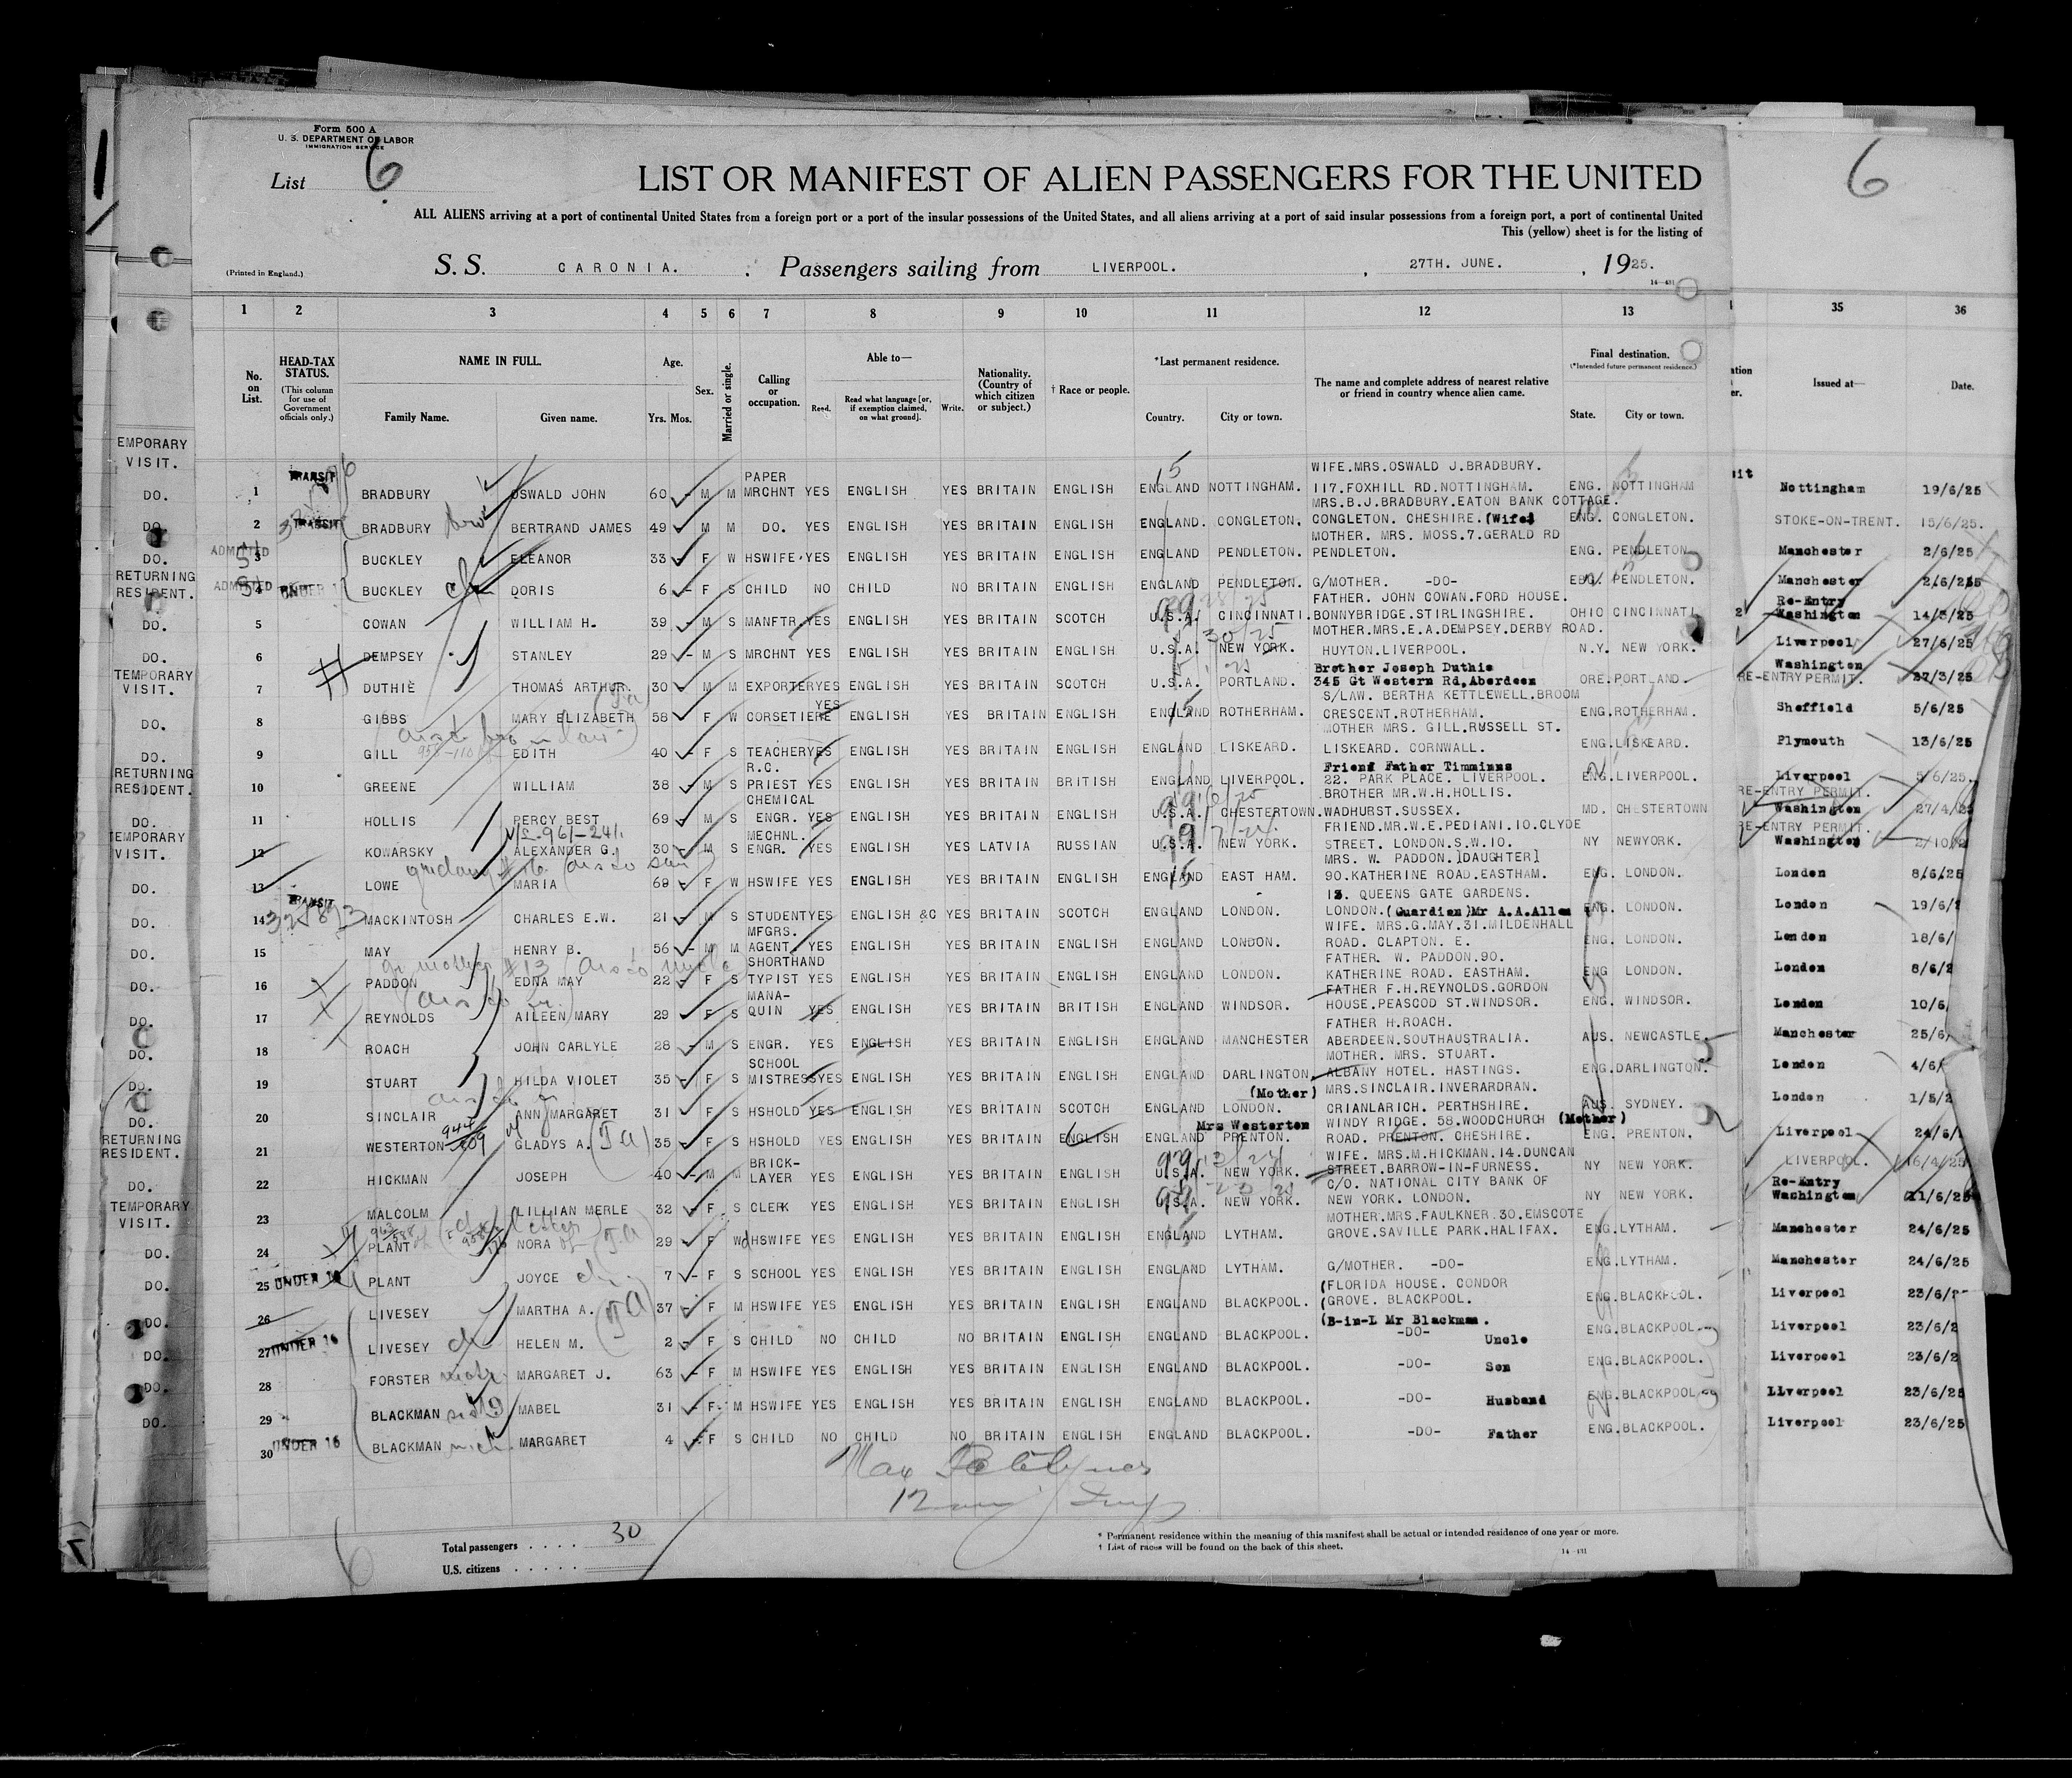 Form 500 A
U. S. DEPARTMENT OF LABOR
IMMIGRATION SERVICE
List 6
6
LIST OR MANIFEST OF ALIEN PASSENGERS FOR THE UNITED
ALL ALIENS arriving at a port of continental United States from a foreign port or a port of the insular possessions of the United States, and all aliens arriving at a port of said insular possessions from a foreign port, a port of continental United
This (yellow) sheet is for the listing of
(Printed in England.)
S. S. CARONIA. Passengers sailing from LIVERPOOL. , 27TH. JUNE. , 1925.
1 2 3 4 5 6 7 8 9 10 11 12 13 35 36
No. on List.
HEAD-TAX STATUS. (This column for use of Government officials only.)
NAME IN FULL. Family Name. Given name.
Age. Yrs. Mos.
Sex.
Married or single.
Calling or occupation.
Able to— Read. Read what language [or, if exemption claimed, on what ground]. Write.
Nationality. (Country of which citizen or subject.)
† Race or people.
*Last permanent residence. Country. City or town.
The name and complete address of nearest relative or friend in country whence alien came.
Final destination. (*Intended future permanent residence.) State. City or town.
Issued at— Date.
EMPORARY VISIT.
TRANSIT PAPER WIFE.MRS.OSWALD J.BRADBURY.
DO. 1 BRADBURY OSWALD JOHN 60 M M MRCHNT YES ENGLISH YES BRITAIN ENGLISH ENGLAND NOTTINGHAM. 117.FOXHILL RD.NOTTINGHAM. ENG. NOTTINGHAM Nottingham 19/6/25
MRS.B.J.BRADBURY.EATON BANK COTTAGE.
DO. 2 TRANSIT BRADBURY bro BERTRAND JAMES 49 M M DO. YES ENGLISH YES BRITAIN ENGLISH ENGLAND. CONGLETON. CONGLETON. CHESHIRE. (Wife) ENG. CONGLETON. STOKE-ON-TRENT. 15/6/25.
MOTHER. MRS. MOSS.7.GERALD RD
DO. ADMITTED 3 BUCKLEY ELEANOR 33 F W HSWIFE YES ENGLISH YES BRITAIN ENGLISH ENGLAND PENDLETON. PENDLETON. ENG. PENDLETON Manchester 2/6/25
RETURNING RESIDENT.
ADMITTED 4 BUCKLEY ch DORIS 6 F S CHILD NO CHILD NO BRITAIN ENGLISH ENGLAND PENDLETON. G/MOTHER. -DO- PENDLETON. Manchester 2/6/25
FATHER. JOHN COWAN.FORD HOUSE. Re-Entry
DO. 5 COWAN WILLIAM H. 39 M S MANFTR YES ENGLISH YES BRITAIN SCOTCH U.S.A. CINCINNATI. BONNYBRIDGE.STIRLINGSHIRE. OHIO CINCINNATI Washington 14/3/25
MOTHER.MRS.E.A.DEMPSEY.DERBY ROAD.
DO. 6 DEMPSEY STANLEY 29 M S MRCHNT YES ENGLISH YES BRITAIN ENGLISH U.S.A. NEW YORK. HUYTON.LIVERPOOL. N.Y. NEW YORK. Liverpool 27/6/25
TEMPORARY VISIT. Brother Joseph Duthie Washington
7 DUTHIE THOMAS ARTHUR. 30 M M EXPORTER YES ENGLISH YES BRITAIN SCOTCH U.S.A. PORTLAND. 345 Gt Western Rd,Aberdeen ORE. PORTLAND. RE-ENTRY PERMIT. 27/3/25
S/LAW. BERTHA KETTLEWELL.BROOM
DO. 8 GIBBS MARY ELIZABETH 58 F W CORSETIERE YES ENGLISH YES BRITAIN ENGLISH ENGLAND ROTHERHAM. CRESCENT.ROTHERHAM. ENG.ROTHERHAM. Sheffield 5/6/25
MOTHER MRS. GILL.RUSSELL ST.
DO. 9 GILL EDITH 40 F S TEACHER YES ENGLISH YES BRITAIN ENGLISH ENGLAND LISKEARD. LISKEARD. CORNWALL. ENG.LISKEARD. Plymouth 13/6/25
RETURNING RESIDENT. R.C. Friend Father Timmins
10 GREENE WILLIAM 38 M S PRIEST YES ENGLISH YES BRITAIN BRITISH ENGLAND LIVERPOOL. 22. PARK PLACE. LIVERPOOL. ENG.LIVERPOOL. Liverpool 5/6/25.
CHEMICAL BROTHER MR.W.H.HOLLIS. RE-ENTRY PERMIT.
DO. 11 HOLLIS PERCY BEST 69 M S ENGR. YES ENGLISH YES BRITAIN ENGLISH U.S.A. CHESTERTOWN. WADHURST.SUSSEX. MD. CHESTERTOWN Washington 27/4/25
TEMPORARY VISIT. MECHNL. FRIEND.MR.W.E.PEDIANI.10.CLYDE RE-ENTRY PERMIT.
12 KOWARSKY ALEXANDER G. 30 M S ENGR. YES ENGLISH YES LATVIA RUSSIAN U.S.A. NEW YORK. STREET. LONDON.S.W.10. NY NEWYORK. Washington
MRS. W. PADDON.]DAUGHTER]
DO. 13 LOWE MARIA 69 F W HSWIFE YES ENGLISH YES BRITAIN ENGLISH ENGLAND EAST HAM. 90.KATHERINE ROAD.EASTHAM. ENG. LONDON. London 8/6/25
TRANSIT 13. QUEENS GATE GARDENS.
DO. 14 MACKINTOSH CHARLES E.W. 21 M S STUDENT YES ENGLISH &C YES BRITAIN SCOTCH ENGLAND LONDON. LONDON.(Guardian)Mr A.A.Allen ENG. LONDON. London 19/6/2
MFGRS. WIFE. MRS.G.MAY.31.MILDENHALL
DO. 15 MAY HENRY B. 56 M M AGENT. YES ENGLISH YES BRITAIN ENGLISH ENGLAND LONDON. ROAD. CLAPTON. E. ENG. LONDON. London 18/6/
SHORTHAND FATHER. W. PADDON.90.
DO. 16 PADDON EDNA MAY 22 F S TYPIST YES ENGLISH YES BRITAIN ENGLISH ENGLAND LONDON. KATHERINE ROAD. EASTHAM. ENG LONDON. London 8/6/2
MANA- FATHER F.H.REYNOLDS.GORDON
DO. 17 REYNOLDS AILEEN MARY 29 F S QUIN YES ENGLISH YES BRITAIN BRITISH ENGLAND WINDSOR. HOUSE.PEASCOD ST.WINDSOR. ENG. WINDSOR. London 10/6/
FATHER H.ROACH.
DO. 18 ROACH JOHN CARLYLE 28 M S ENGR. YES ENGLISH YES BRITAIN ENGLISH ENGLAND MANCHESTER ABERDEEN.SOUTHAUSTRALIA. AUS. NEWCASTLE. Manchester 25/6/
SCHOOL MOTHER. MRS. STUART.
DO. 19 STUART HILDA VIOLET 35 F S MISTRESS YES ENGLISH YES BRITAIN ENGLISH ENGLAND DARLINGTON. ALBANY HOTEL. HASTINGS. ENG.DARLINGTON. London 4/6/
(Mother) MRS.SINCLAIR.INVERARDRAN.
DO. 20 SINCLAIR ANN MARGARET 31 F S HSHOLD YES ENGLISH YES BRITAIN SCOTCH ENGLAND LONDON. CRIANLARICH. PERTHSHIRE. AUS. SYDNEY. London 1/5/2
RETURNING RESIDENT. Mrs Westerton WINDY RIDGE. 58.WOODCHURCH (Mother)
21 WESTERTON GLADYS A. 35 F S HSHOLD YES ENGLISH YES BRITAIN ENGLISH ENGLAND PRENTON. ROAD. PRENTON. CHESHIRE. ENG. PRENTON. Liverpool 24/6/
BRICK- WIFE. MRS.M.HICKMAN.14.DUNCAN
DO. 22 HICKMAN JOSEPH 40 M M LAYER YES ENGLISH YES BRITAIN ENGLISH U.S.A. NEW YORK. STREET.BARROW-IN-FURNESS. NY NEW YORK. LIVERPOOL. 16/4/25
TEMPORARY VISIT. C/O. NATIONAL CITY BANK OF Re-Entry
23 MALCOLM LILLIAN MERLE 32 F S CLERK YES ENGLISH YES BRITAIN ENGLISH U.S.A. NEW YORK. NEW YORK. LONDON. NY NEW YORK. Washington 11/6/25
MOTHER.MRS.FAULKNER.30.EMSCOTE
DO. 24 PLANT NORA 29 F Wd HSWIFE YES ENGLISH YES BRITAIN ENGLISH ENGLAND LYTHAM. GROVE.SAVILLE PARK.HALIFAX. ENG.LYTHAM. Manchester 24/6/25
DO. 25 UNDER 16 PLANT JOYCE ch 7 F S SCHOOL YES ENGLISH YES BRITAIN ENGLISH ENGLAND LYTHAM. G/MOTHER. -DO- ENG.LYTHAM. Manchester 24/6/25
(FLORIDA HOUSE. CONDOR
DO. 26 LIVESEY MARTHA A. 37 F M HSWIFE YES ENGLISH YES BRITAIN ENGLISH ENGLAND BLACKPOOL. (GROVE. BLACKPOOL. ENG.BLACKPOOL. Liverpool 23/6/2
(B-in-L Mr Blackman.
DO. 27 UNDER 16 LIVESEY ch HELEN M. 2 F S CHILD NO CHILD NO BRITAIN ENGLISH ENGLAND BLACKPOOL. -DO- Uncle ENG.BLACKPOOL. Liverpool 23/6/2
DO. 28 FORSTER MARGARET J. 63 F M HSWIFE YES ENGLISH YES BRITAIN ENGLISH ENGLAND BLACKPOOL. -DO- Son ENG.BLACKPOOL. Liverpool 23/6/2
DO. 29 BLACKMAN MABEL 31 F M HSWIFE YES ENGLISH YES BRITAIN ENGLISH ENGLAND BLACKPOOL. -DO- Husband ENG.BLACKPOOL Liverpool 23/6/25
30 UNDER 16 BLACKMAN MARGARET 4 F S CHILD NO CHILD NO BRITAIN ENGLISH ENGLAND BLACKPOOL. -DO- Father ENG.BLACKPOOL. Liverpool 23/6/25
Total passengers . . . . 30
U.S. citizens . . . . .
* Permanent residence within the meaning of this manifest shall be actual or intended residence of one year or more.
† List of races will be found on the back of this sheet.
14—431
6